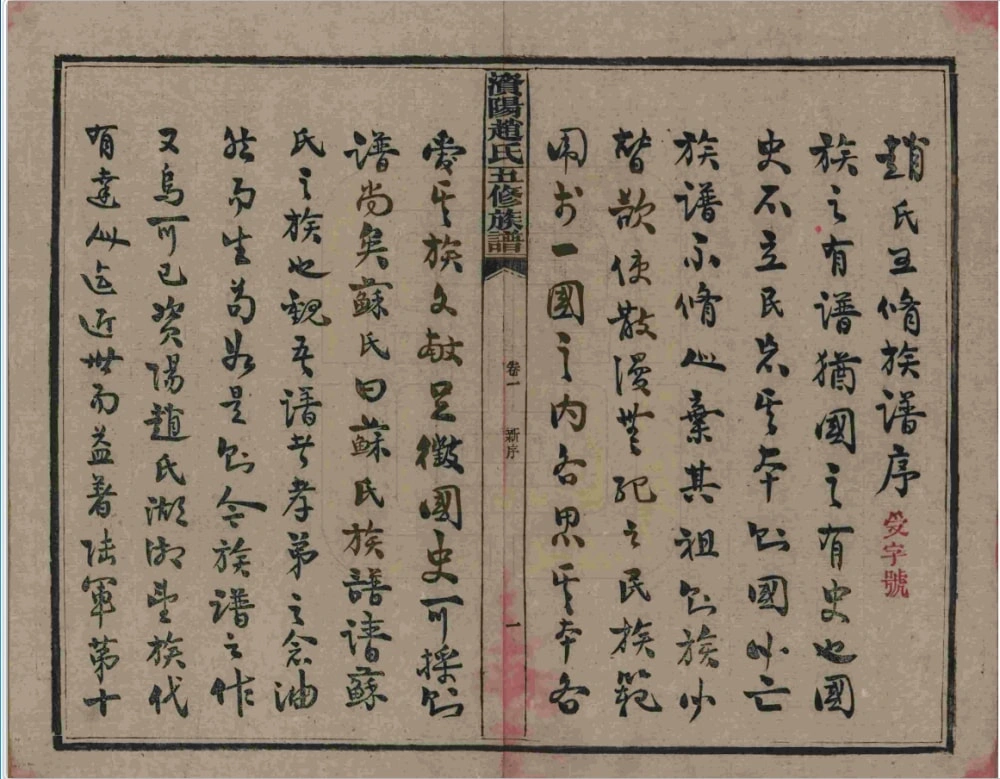 趙氏五脩族譜序 受字號
族之有譜猶國之有史也國
史不立民忘其本則國以亡
族譜不脩人棄其祖則族以
替欲使散漫無紀之民族範
圍於一國之內各思其本各
澬陽趙氏五修族譜 卷一 新序 一
愛其族文獻足徵國史可採則
譜尚矣蘇氏曰蘇氏族譜譜蘇
氏之族也觀吾譜者孝弟之念油
然而生苟如是則今族譜之作
又烏可已資陽趙氏湖湘望族代
有達人迄近世而益著陸軍第十